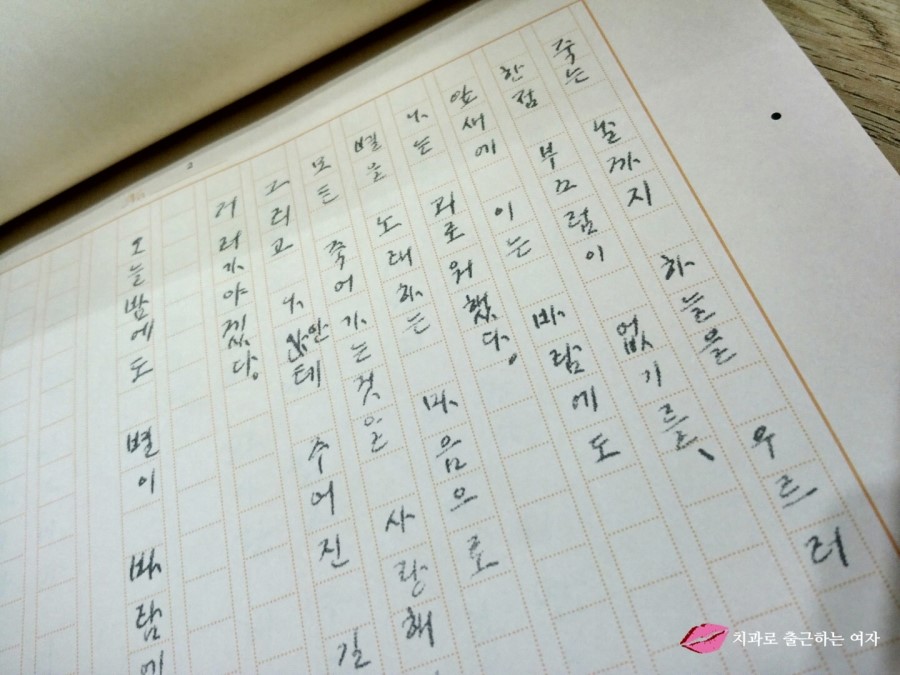 죽는 날까지 하늘을 우르러
한점 부끄럼이 없기를、
잎새에 이는 바람에도
나는 괴로워했다.
별을 노래하는 마음으로
모든 죽어가는것을 사랑해
그리고 나안테 주어진 길
거러가야겠다.
오늘밤에도 별이 바람에
치과로 출근하는 여자